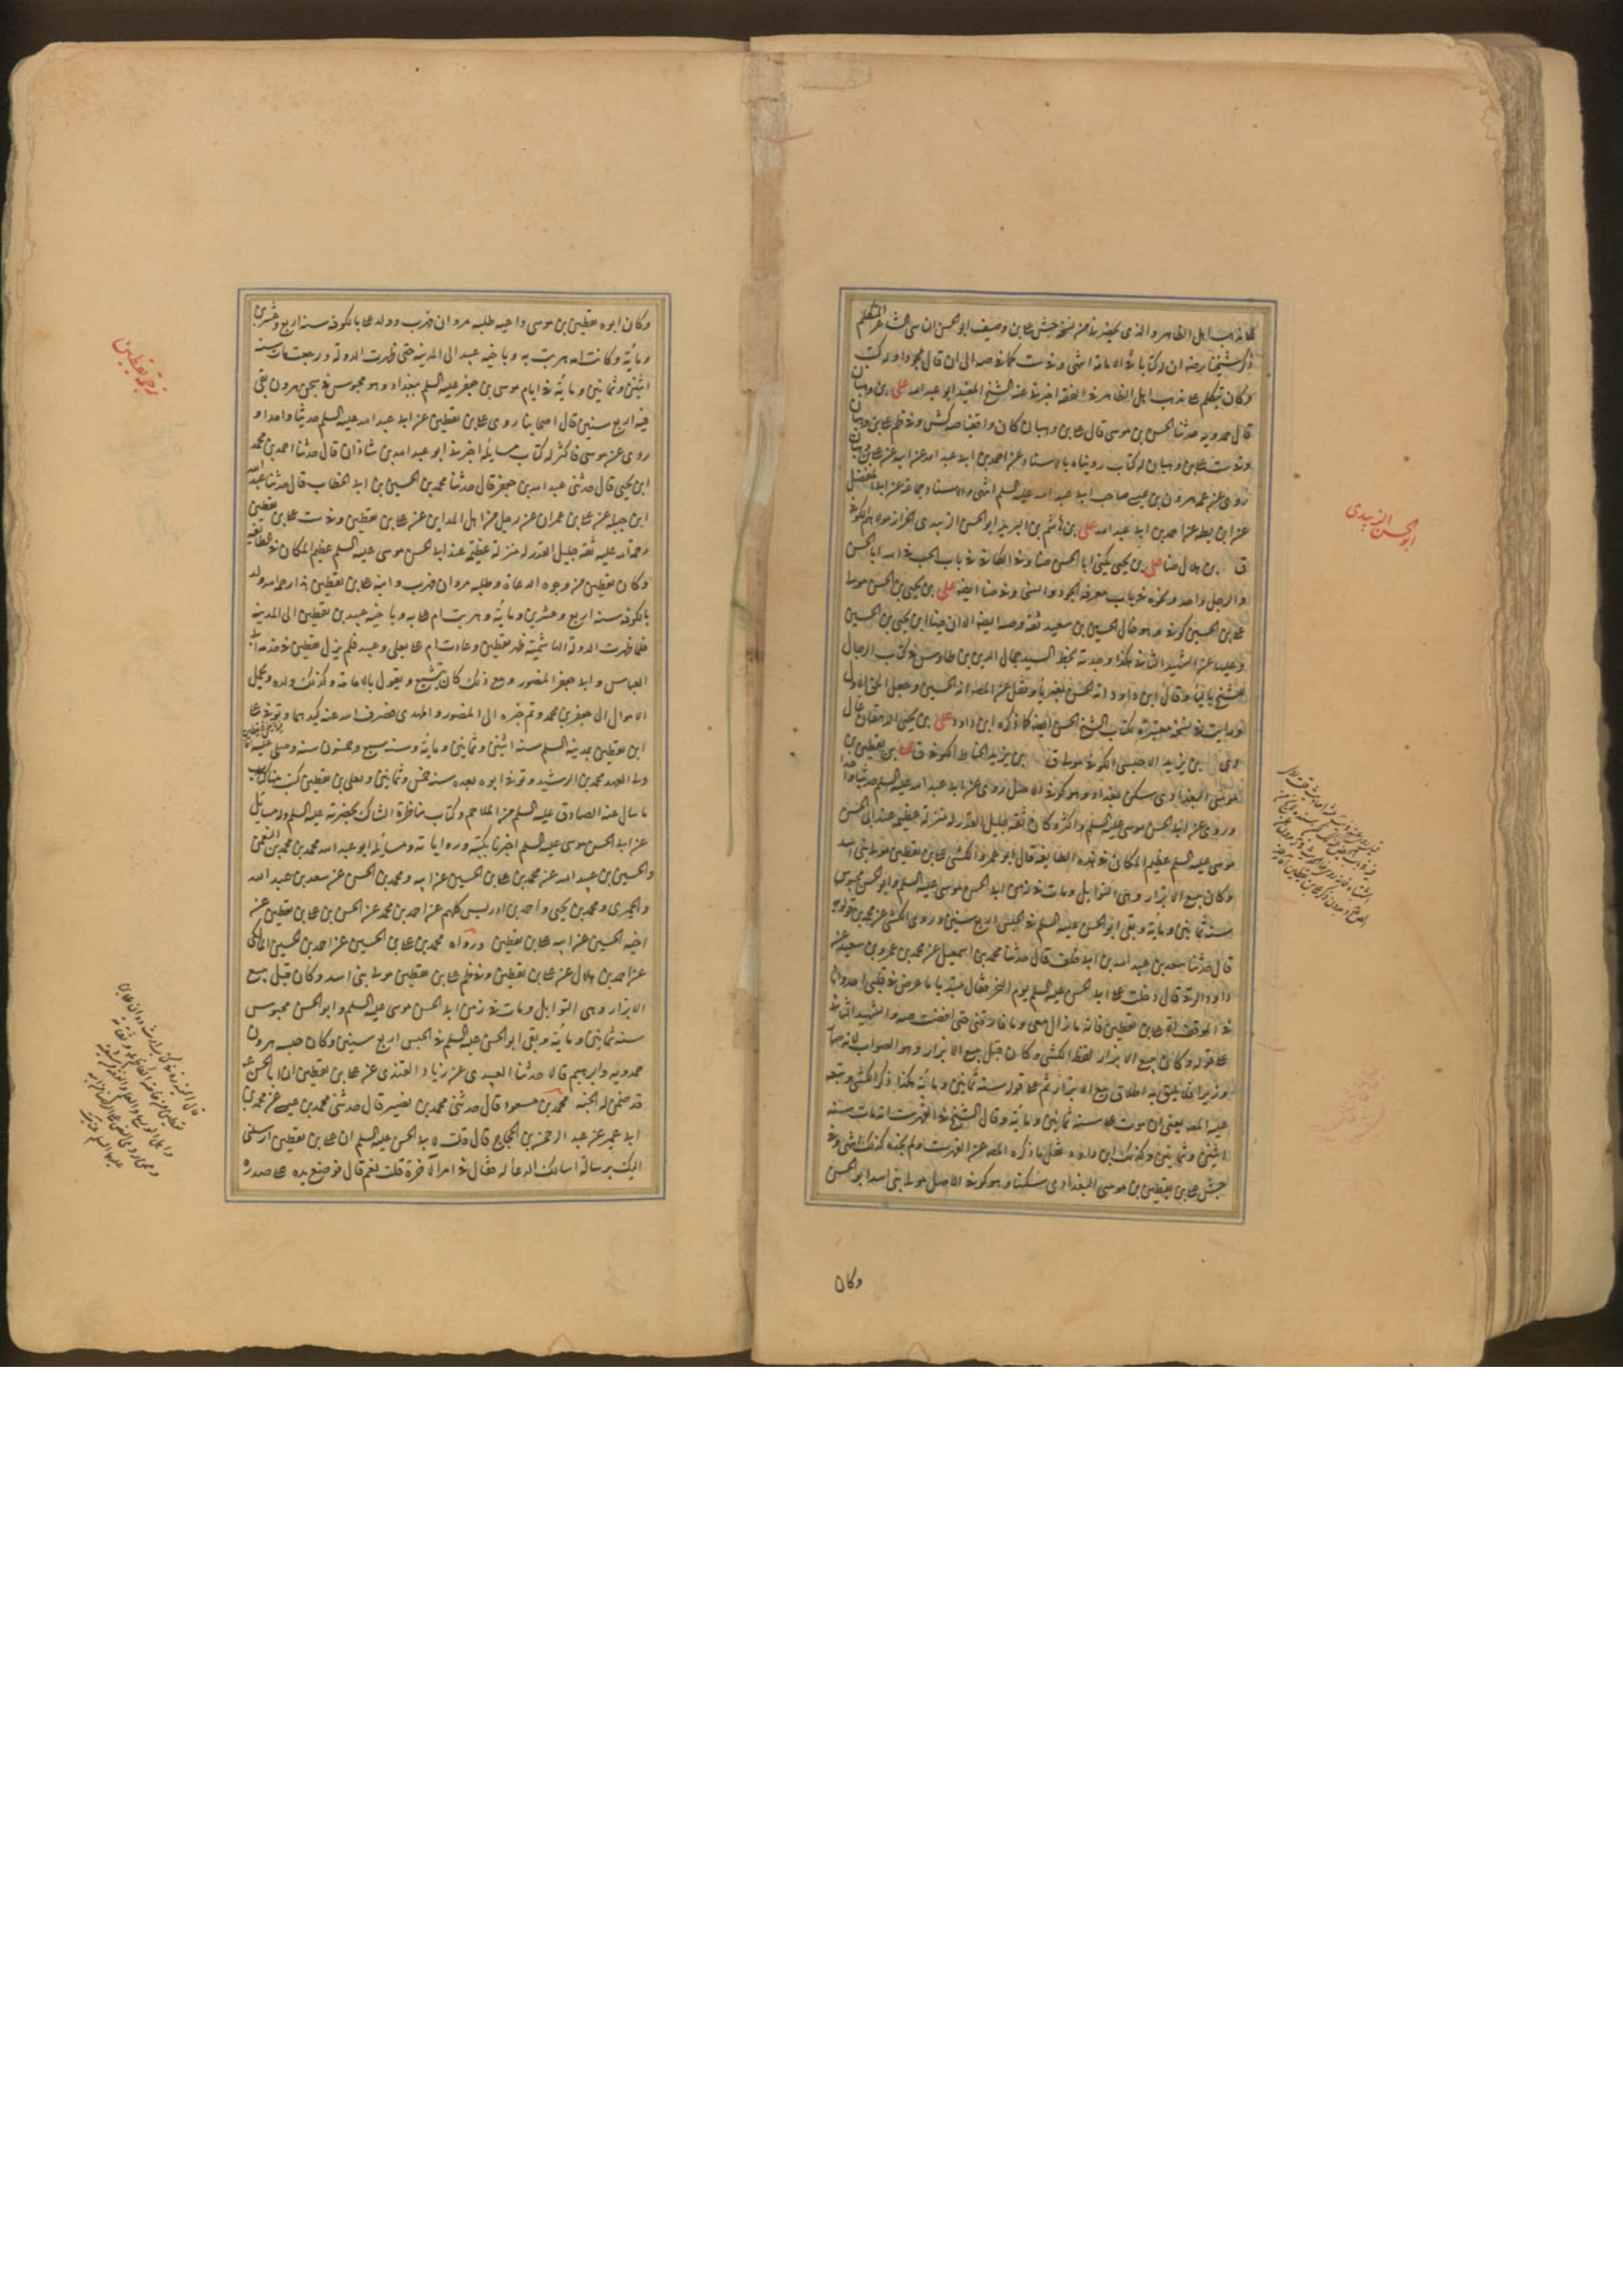 على مذهب اهل الظاهر والذى يحضرنى من نسخة جش على بن وصيف ابو الحسن الناشى الشاعر المتكلم
ذكر شيخنا رضه ان له كتابا فى الامامة انتهى وفى ست كما فى صه الى ان قال مجودا وله كتب
وكان يتكلم على مذهب اهل الظاهر فى الفقه اخبرنا عنه الشيخ المفيد ابو عبد الله على بن وهبان
قال حمدويه حدثنا الحسن بن موسى قال على بن وهبان كان واقفيا صه كش وفى ظم على بن وهبان
وفى ست على بن وهبان له كتاب رويناه بالاسناد عن احمد بن ابى عبد الله عن ابيه عن على بن وهبان
روى عن عمه هرون بن عيسى صاحب ابى عبد الله عليه السلم انتهى والاسناد جماعة عن ابى المفضل
عن ابن بطه عن احمد بن ابى عبد الله على بن هاشم بن البريد ابو الحسن الزبيدى الخزاز مولاهم الكوفى
ق بن هلال ضا على بن يحيى يكنى ابا الحسن ضا وفى الكافى فى باب الحب فى الله ابا الحسن
والرجل واحد ونحوه فى باب معرفة الجود والسخى وفى ضا ايضه على بن يحيى بن الحسن مولى
على بن الحسين كوفى وهو خال الحسين بن سعيد ثقة وصه ايضه الا ان فيها ابن يحيى بن الحسين
وعليها عن الشهيد الثانى هكذا وجدته بخط السيد جمال الدين بن طاوس فى كتاب الرجال
للشيخ بالياء وقال ابن داود انه الحسن بغير ياء ونقل عن المصه انه الحسين وجعل الحق الاول
ورايت فى نسخة معتبرة لكتاب الشيخ الحسن ايضه كما ذكره ابن داود على بن يحيى الدهقان غال
دى بن يزيد الاحبسى الكوفى مولى ق بن يزيد الحناط الكوفى ق على بن يقطين بن
موسى البغدادى سكن بغداد وهو كوفى الاصل روى عن ابى عبد الله عليه السلم حديثا واحدا
وروى عن ابى الحسن موسى عليه السلم واكثر وكان ثقة جليل القدر له منزلة عظيمة عند ابى الحسن
موسى عليه السلم عظيم المكان فى هذه الطايفة قال ابو عمرو الكشى على بن يقطين مولى بنى اسد
وكان يبيع الابزار وهى التوابل ومات فى زمن ابى الحسن موسى عليه السلم وابو الحسن محبوس
سنة ثمانين ومائة وبقى ابو الحسن عليه السلم فى الحبس اربع سنين وروى الكشى عن محمد بن قولويه
قال حدثنا سعد بن عبد الله بن ابى خلف قال حدثنا محمد بن اسمعيل عن محمد بن عمرو بن سعيد عن
داود الرقى قال دخلت على ابى الحسن عليه السلم يوم النحر فقال مبتديا ما عرض فى قلبى احد وانا
فى الموقف الا على بن يقطين فانه ما زال معى وما فارقنى حتى افضت صه والشهيد الثانى
على قوله وكان يبيع الابزار لفظ الكشى وكان قبل يبيع الابزار وهو الصواب لانه صار
وزيرا فلا يليق به اطلاق بيع الابزار ثم على قوله سنة ثمانين ومائة هكذا ذكر الكشى وتبعه
عليه المصه يعنى ان موت على سنة ثمانين ومائة وقال الشيخ فى الفهرست انه مات سنة
اثنين وثمانين وكذلك ابن داود نقل ما ذكره المصه عن الفهرست ولم نجده كذلك انتهى وفى
جش على بن يقطين بن موسى البغدادى سكنها وهو كوفى الاصل مولى بنى اسد ابو الحسن
وكان
ابو الحسن الزبيدى
وكان ابوه يقطين بن موسى داعيه طلبه مروان فهرب وولد على بالكوفة سنة اربع وعشرين
ومائة وكانت امه هربت به وباخيه عبيد الى المدينة حتى ظهرت الدولة ورجعت مات سنة
اثنين وثمانين ومائة فى ايام موسى بن جعفر عليه السلم ببغداد وهو محبوس فى سجن هرون بقى
فيه اربع سنين قال اصحابنا روى على بن يقطين عن ابى عبد الله عليه السلم حديثا واحدا و
روى عن موسى فاكثر له كتاب مسايله اخبرنا ابو عبد الله بن شاذان قال حدثنا احمد بن محمد
ابن يحيى قال حدثنى عبد الله بن جعفر قال حدثنا محمد بن الحسين بن ابى الخطاب قال حدثنا عبد الله
ابن جبلة عن على بن عمران عن رجل من اهل المداين عن على بن يقطين وفى ست على بن يقطين
رحمة الله عليه ثقة جليل القدر له منزلة عظيمة عند ابى الحسن موسى عليه السلم عظيم المكان فى الطايفة
وكان يقطين من وجوه الدعاة وطلبه مروان فهرب وابنه على بن يقطين هذا رحمه الله ولد
بالكوفة سنة اربع وعشرين ومائة وهربت ام على به وباخيه عبيد بن يقطين الى المدينة
فلما ظهرت الدولة الهاشمية ظهر يقطين وعادت ام على بعلى وعبيد فلم يزل يقطين فى خدمة ابى
العباس وابى جعفر المنصور ومع ذلك كان يتشيع ويقول بالامامة وكذلك ولده ويحمل
الاموال الى جعفر بن محمد ونم خبره الى المنصور والمهدى فصرف الله عنه كيدهما وتوفى على
ابن يقطين بمدينة السلم سنة اثنين وثمانين ومائة وسنه سبع وخمسون سنة وصلى عليه
ولى العهد محمد بن الرشيد وتوفى ابوه بعده سنة خمس وثمانين ولعلى بن يقطين كتب منها كتاب
ما سال عنه الصادق عليه السلم من الملاحم وكتاب مناظرة الشاك بحضرته عليه السلم وله مسايل
عن ابى الحسن موسى عليه السلم اخبرنا بكتبه ورواياته ومسايله ابو عبد الله محمد بن محمد بن النعمن
والحسين بن عبيد الله عن محمد بن على بن الحسين عن ابيه ومحمد بن الحسن عن سعد بن عبد الله
والحميرى ومحمد بن يحيى واحمد بن ادريس كلهم عن احمد بن محمد عن الحسن بن على بن يقطين عن
اخيه الحسين عن ابيه على بن يقطين ورواه محمد بن على بن الحسين عن احمد بن الحسين المالكى
عن احمد بن هلال عن على بن يقطين وفى ظم على بن يقطين مولى بنى اسد وكان قبل يبيع
الابزار وهى التوابل ومات فى زمن ابى الحسن موسى عليه السلم وابو الحسن محبوس
سنة ثمانين ومائة وبقى ابو الحسن عليه السلم فى الحبس اربع سنين وكان حبسه هرون
حمدويه وابرهيم قالا حدثنا العبيدى عن زياد القندى عن على بن يقطين ان ابا الحسن ع
قد ضمن له الجنة محمد بن مسعود قال حدثنى محمد بن نصير قال حدثنى محمد بن عيسى عن محمد بن
ابى عمير عن عبد الرحمن بن الحجاج قال قلت لابى الحسن عليه السلم ان على بن يقطين ارسلنى
اليك برسالة اسالك الدعا له فقال فى امر الآخرة قلت نعم قال فوضع يده على صدره
ترجمة يقطين